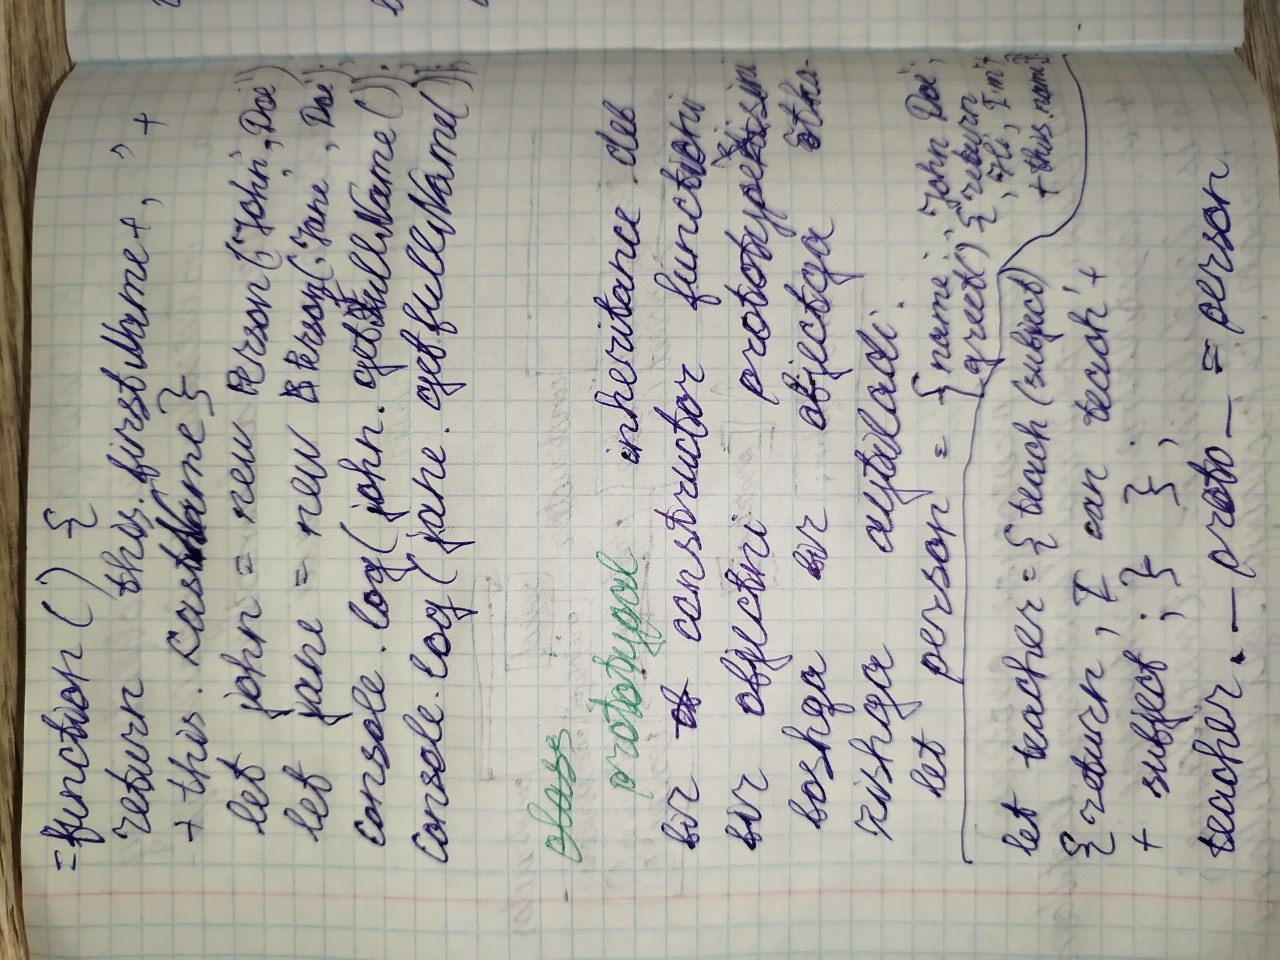 =function () {
return this.firstName + ' ' +
+ this.LastName }
let john = new Person('John', Doe')
let jane = new Person('Jane', Doe');
console.log(john.getFullName());
console.log(jane.getfullName());
class
prototypal inheritance deb
bir constructor function
bir objectini prototype
boshqa bir objectga o'tka-
zishga aytiladi.
let person = { name: 'John Doe',
greet() { return
'Hi, I'm' +
+ this.name }}
let teacher = { teach (subject)
{ return 'I can teach' +
+ subject ; } };
teacher.__proto__ = person